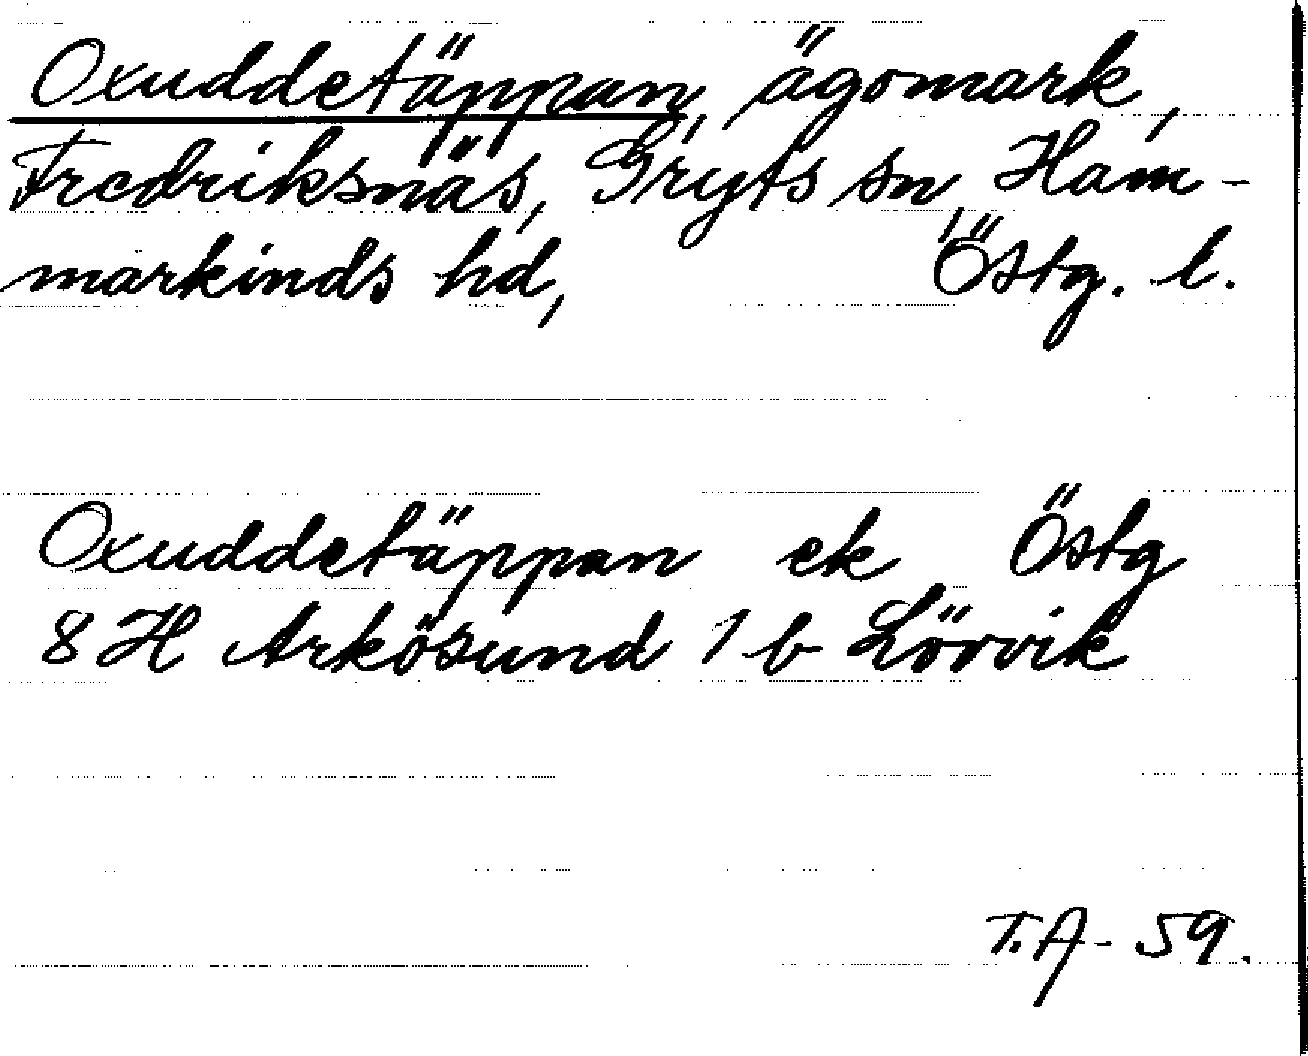 Oxuddetäppan, ägomark,
Fredriksnäs, Gryts sn, Ham-
markinds hd, Östg. l.
Oxuddetäppan ek Östg
8 H Arkösund 1 b Lövvik
T.A - 59.